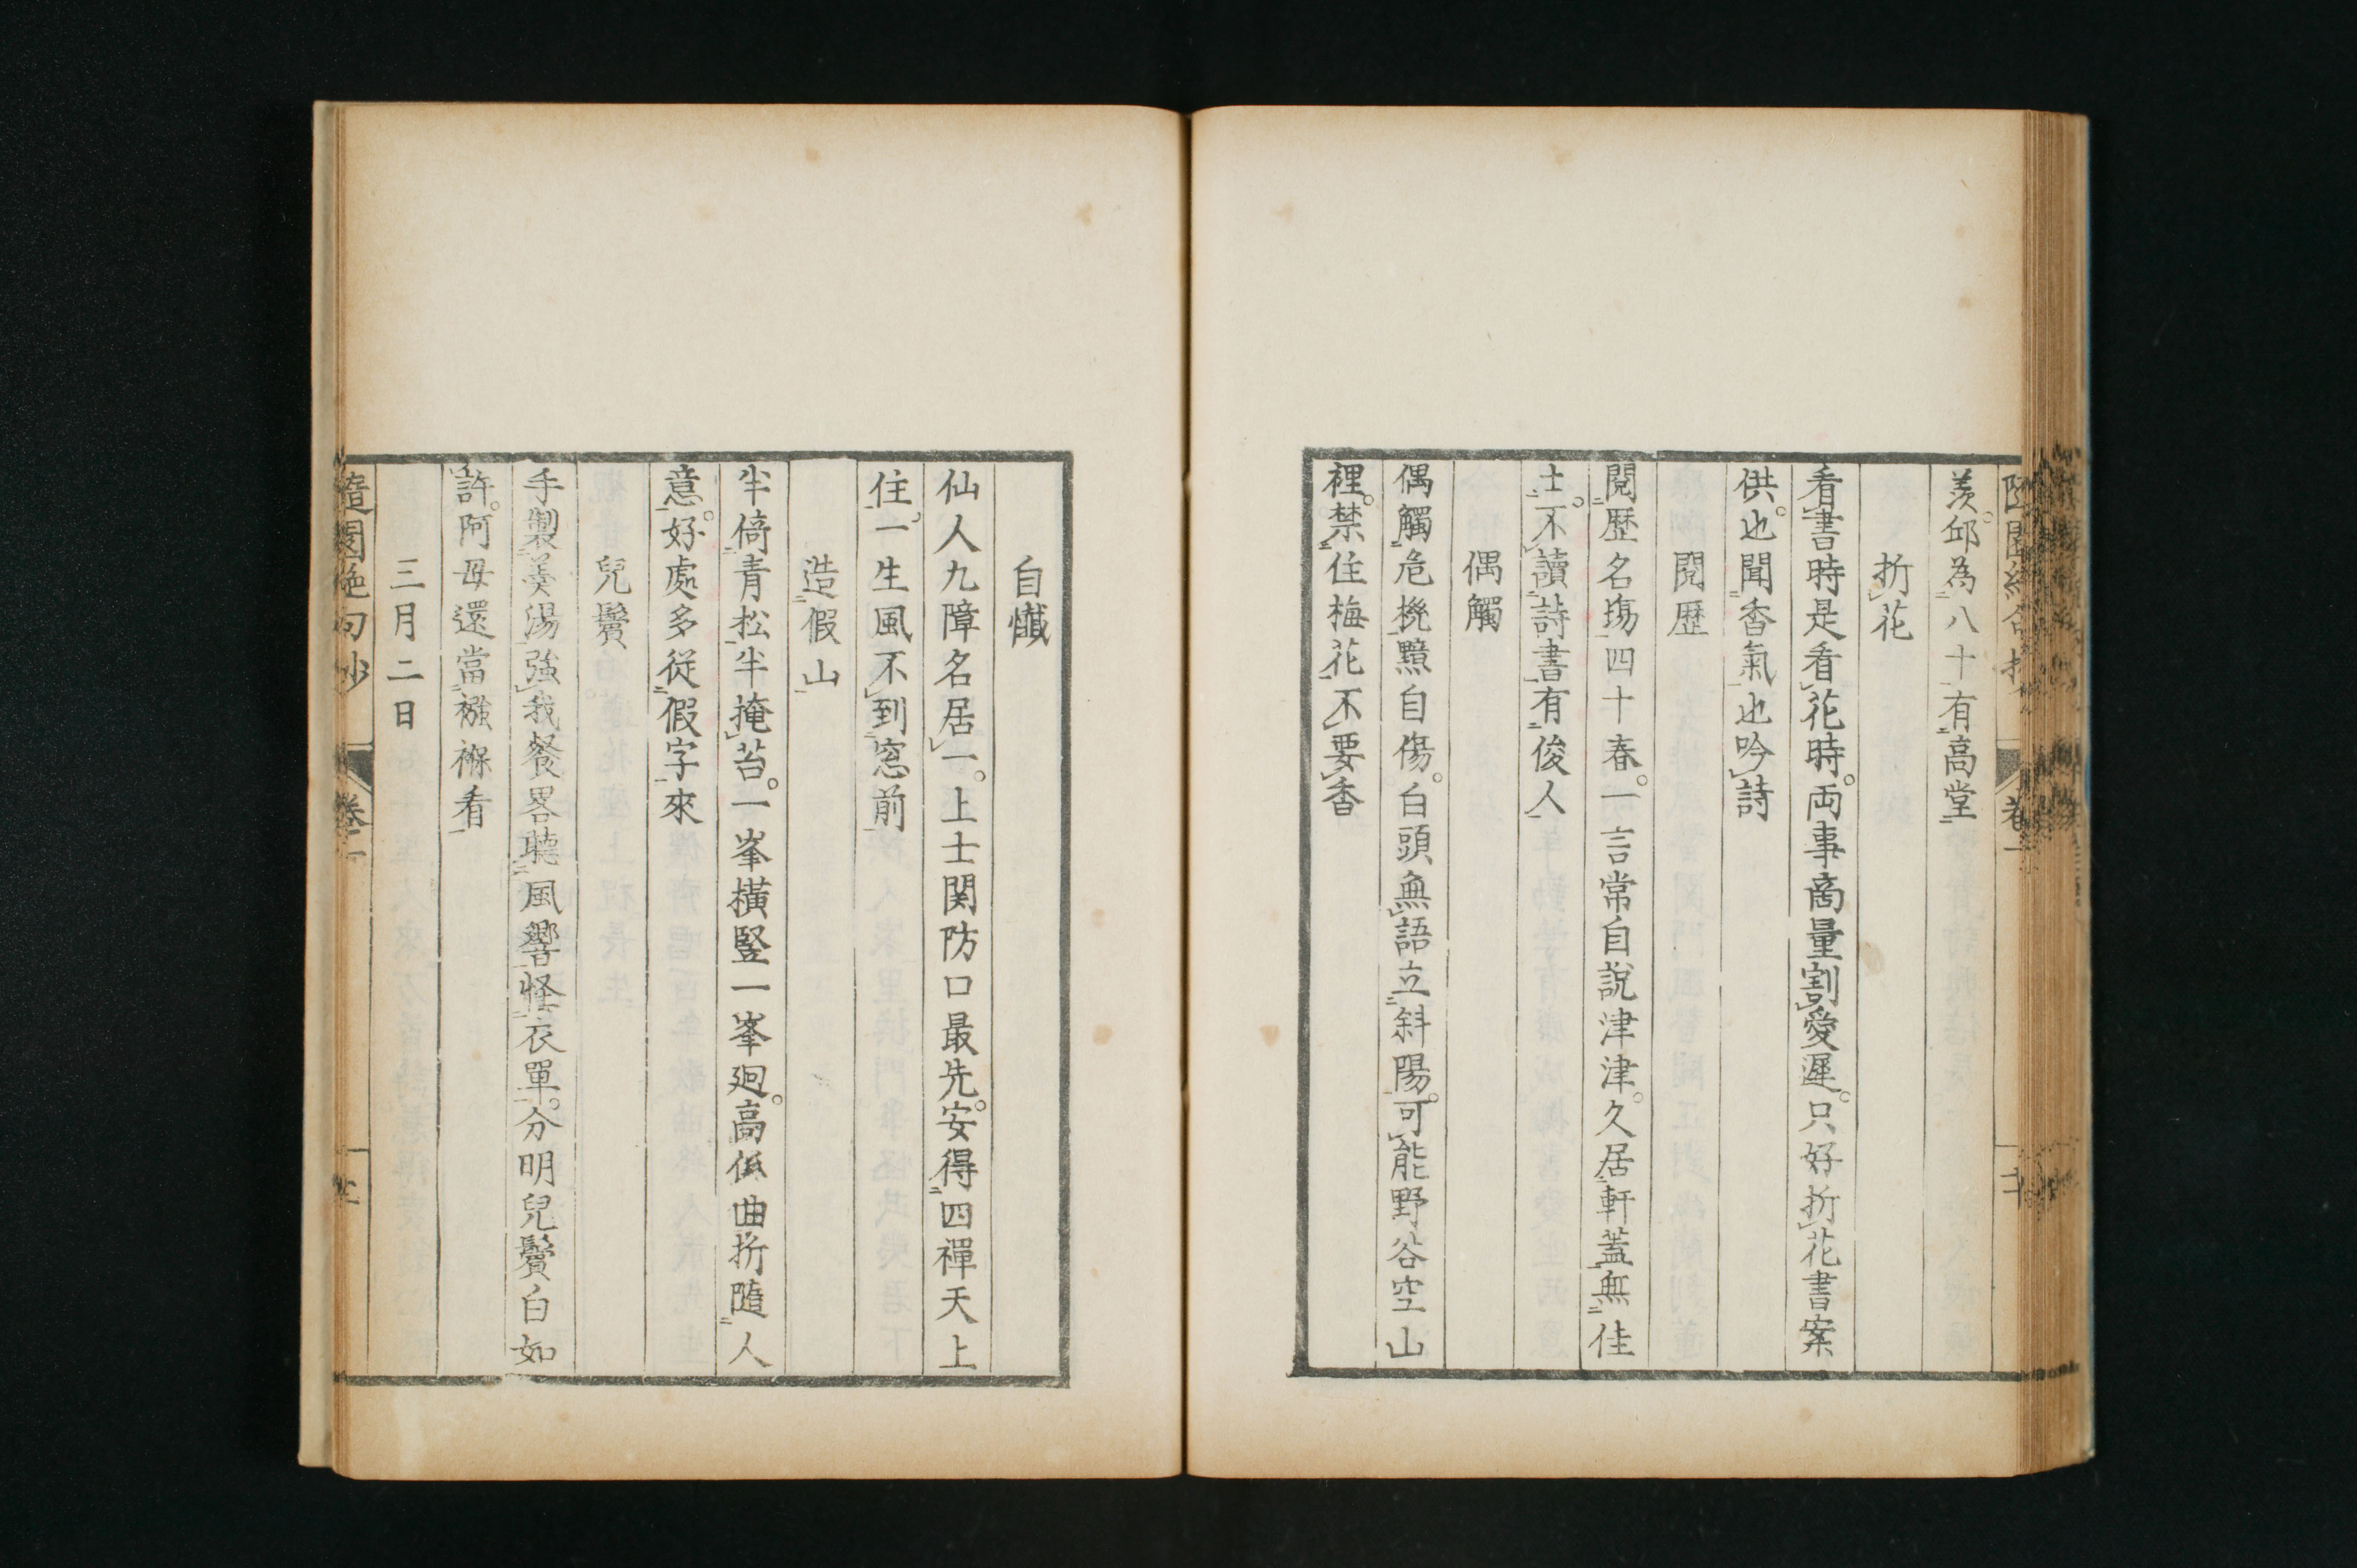 羨。邱為八十有高堂
折花
看書時是看花時。両事商量割愛遲。只好折花書案
供。也聞香氣也吟詩
閱歷
閱歷名塲四十春。一言常自說津津。久居軒蓋無佳
士。不讀詩書有俊人
偶觸
偶觸危機黯自傷。白頭無語立斜陽。可能野谷空山
裡。禁住梅花不要香
自懺
仙人九障名居一。上士関防口最先。安得四禪天上
住。一生風不到窓前
造假山
半倚青松半掩苔。一峯橫竪一峯廻。高低曲折隨人
意。好處多從假字來
兒鬢
手製羮湯強我餐畧聴風響怪衣單。分明兒鬢白如
許。阿母還當襁褓看
三月二日
隨園絶句抄
卷一